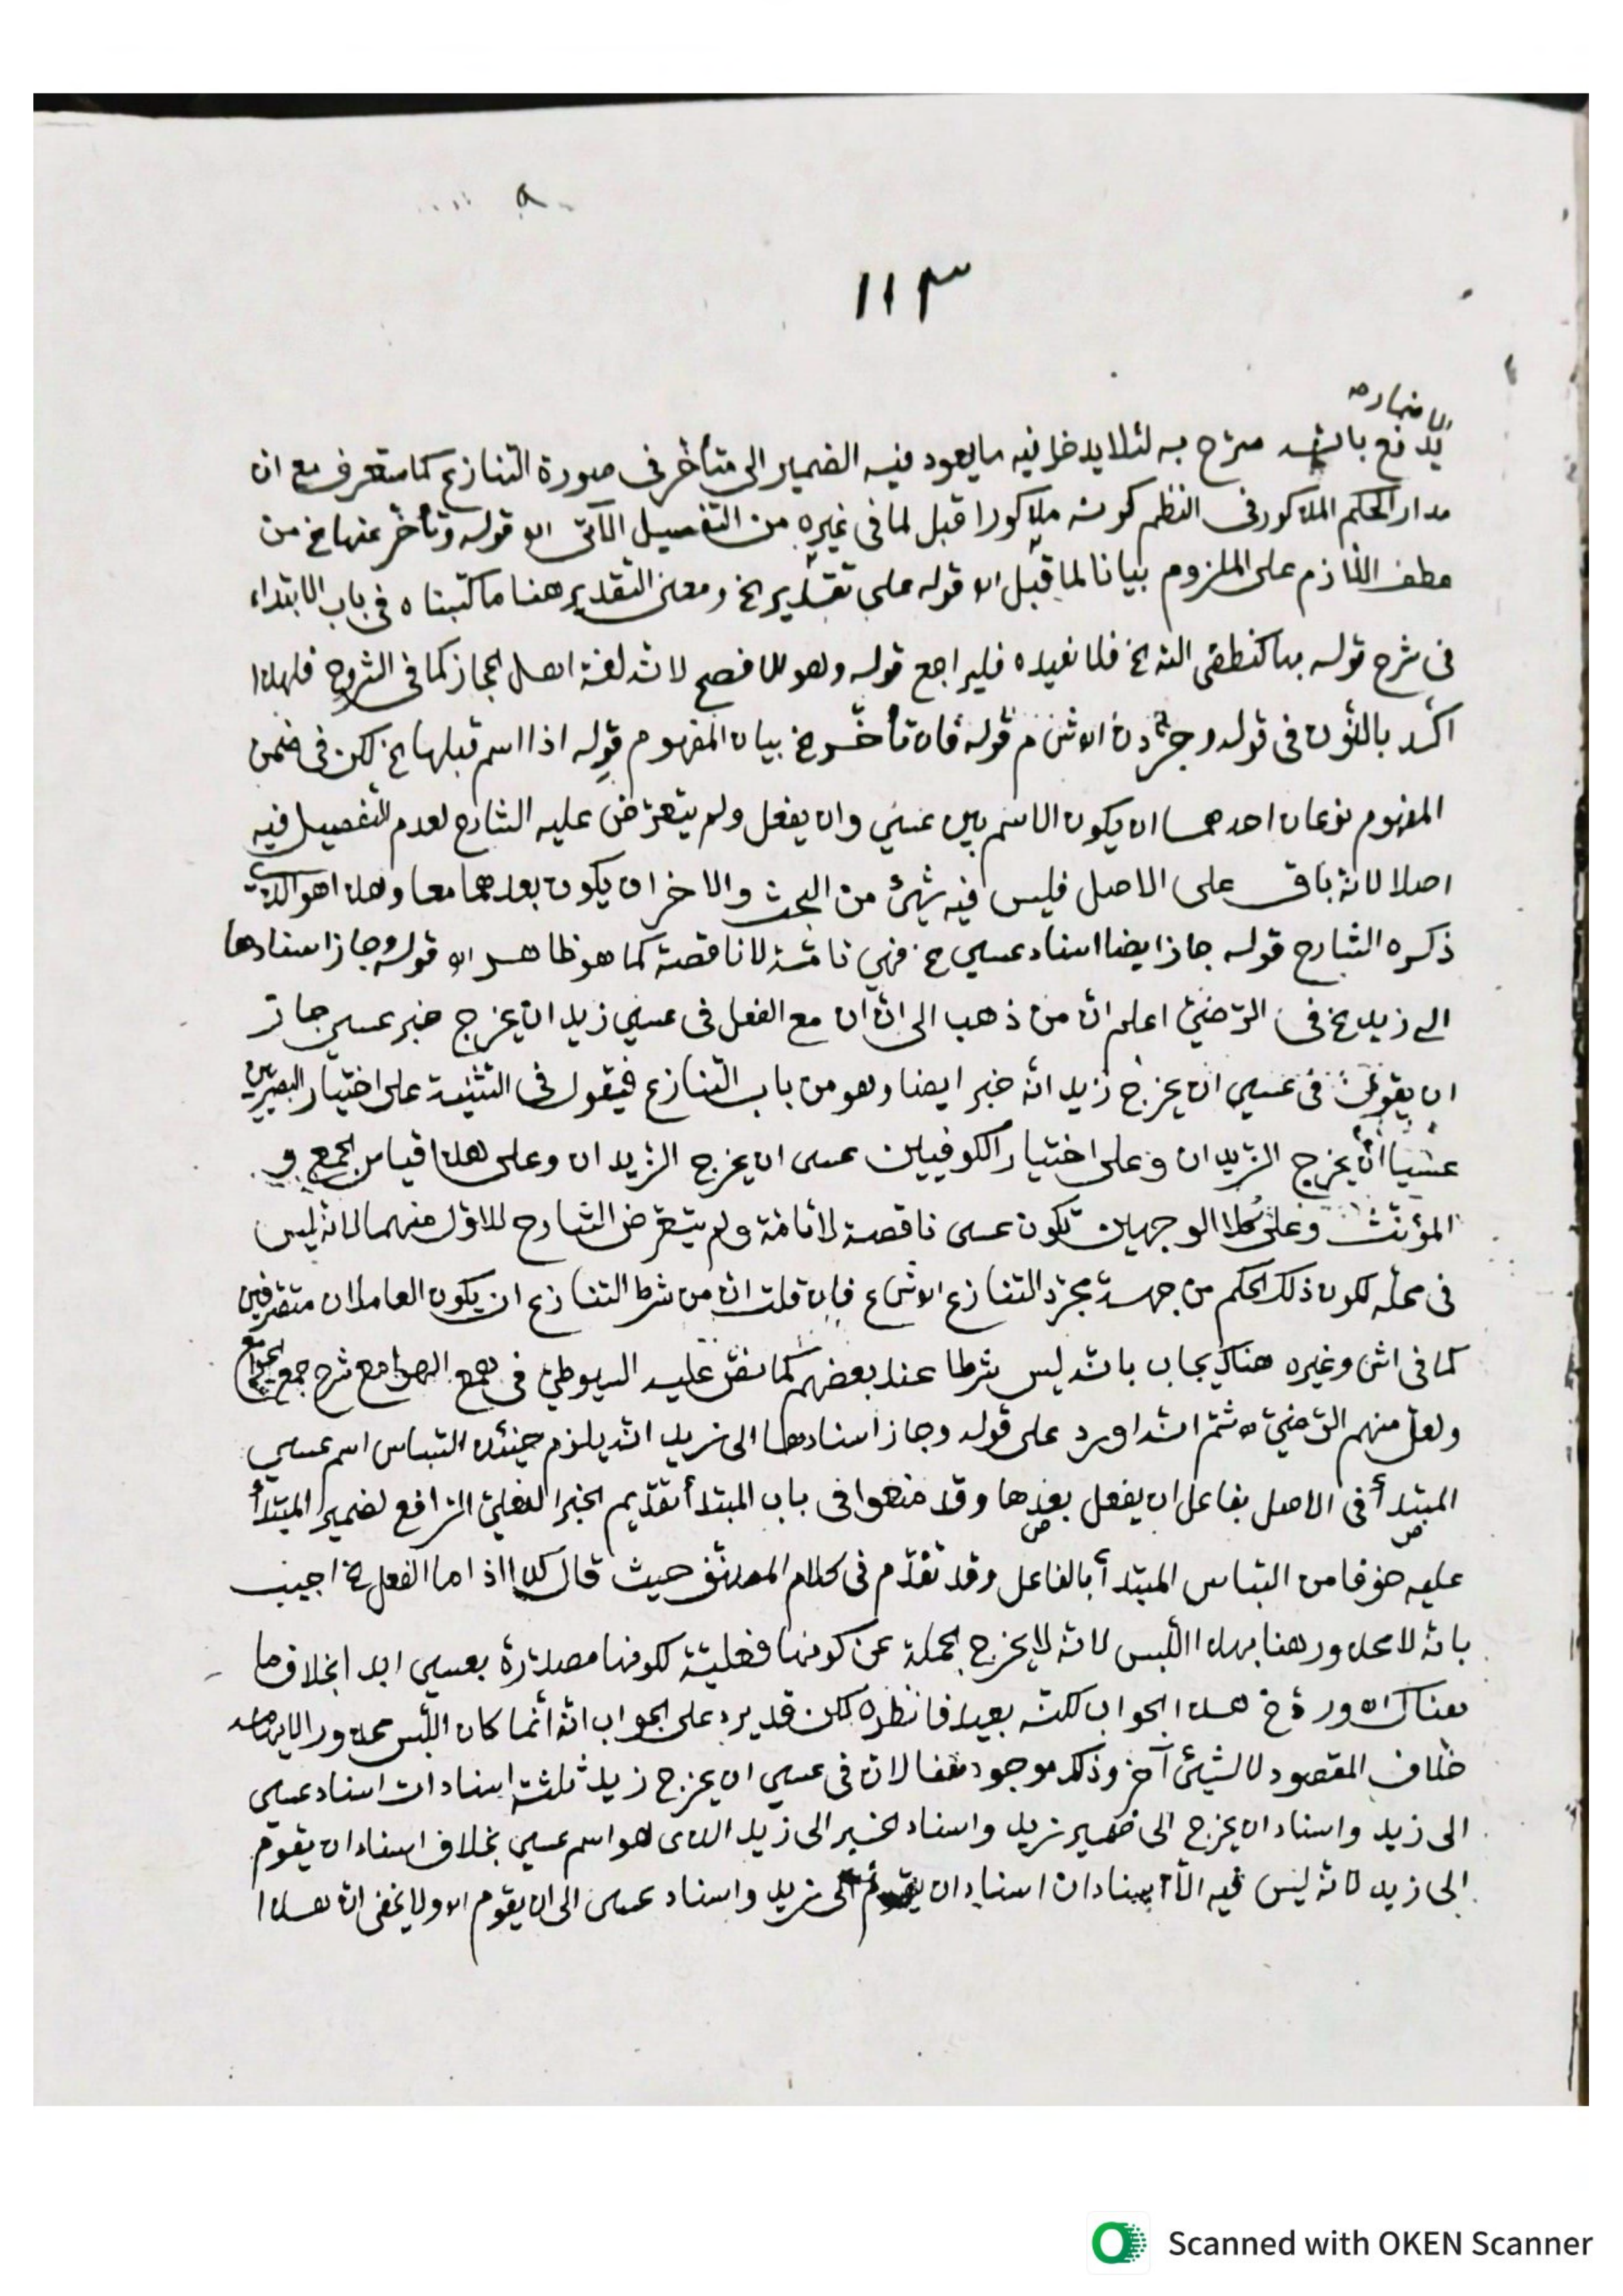 ١١٣
يدفع بانه صرّح به لئلا يدخل فيه ما يعود فيه الضمير الى متأخر فى صورة التنازع كما ستعرف مع ان
مدار الحكم المذكور فى النظم كونه مذكورا قبل لما فى غيره من التفصيل الآتى قوله وتأخر عنها الخ من
عطف اللازم على الملزوم بيانا لما قبل قوله على تقدير الخ ومعنى التقدير هنا ما كتبناه فى باب الابتداء
فى شرح قوله الخ فلا نعيده فليراجع قوله وهو الافصح لانه لغة اهل الحجاز كما فى الشروح فلهذا
اكّد بالنون فى قوله وجردن قوله فان تأخر الخ بيان المفهوم قوله اذا اسم قبلها الخ لكن فى ضمن
المفهوم نوعان احدهما ان يكون الاسم بين عسى وان يفعل ولم يتعرّض عليه الشارح لعدم التفصيل فيه
اصلا لانه باق على الاصل فليس فيه شيئ من البحث والاخر ان يكون بعدهما معا وهذا هو الذى
ذكره الشارح قوله جاز ايضا اسناد عسى الخ فهى تامّة لا ناقصة كما هو ظاهر قوله وجاز اسنادها
الى زيد الخ فى الرّضىّ اعلم انّ من ذهب الى انّ ان مع الفعل فى عسى زيد ان يخرج خبر عسى جاز
ان يقول فى عسى ان يخرج زيد انّه خبر ايضا وهو من باب التنازع فيقول فى التثنية على اختيار البصريين
عسيا ان يخرج الزيدان وعلى اختيار الكوفيين عسى ان يخرج الزيدان وعلى هذا قياس الجمع و
المؤنّث وعلى كلا الوجهين تكون عسى ناقصة لا تامّة ولم يتعرّض الشارح للاوّل منهما لانه ليس
فى محلّه لكون ذلك الحكم من جهة مجرّد التنازع فان قلت انّ من شرط التنازع ان يكون العاملان متصرّفين
كما فى وغيره هناك يجاب بانه ليس شرطا عند بعضهم كما نصّ عليه السيوطىّ فى همع الهوامع شرح جمع الجوامع
ولعلّ منهم الرّضىّ ثمّ انّه اورد على قوله وجاز اسنادها الى زيد انّه يلزم حينئذ التباس اسم عسى
المبتدأ فى الاصل بفاعل ان يفعل بعدها وقد منعوا فى باب المبتدأ تقديم الخبر الفعلىّ الرّافع لضمير المبتدأ
عليه خوفا من التباس المبتدأ بالفاعل وقد تقدّم فى كلام المصنّف حيث قال كذا اذا ما الفعل الخ اجيب
بانه لا محذور هنا بهذا اللّبس لانه لا يخرج الجملة عن كونها فعليّة لكونها مصدّرة بعسى ابدا بخلاف ما
هناك هذا الجواب لكنّه بعيد فانظره لكن قد يرد على الجواب انّه انّما كان اللّبس محذورا لايهامه
خلاف المقصود لا لشيئ آخر وذلك موجود هنا لانّ فى عسى ان يخرج زيد ثلثة اسنادات اسناد عسى
الى زيد واسناد ان يخرج الى ضمير زيد واسناد الخبر الى زيد الذى هو اسم عسى بخلاف اسناد ان يقوم
الى زيد لانه ليس فيه الّا اسنادان اسناد ان يقوم الى زيد واسناد عسى الى ان يقوم ولا يخفى انّ هذا
Scanned with OKEN Scanner